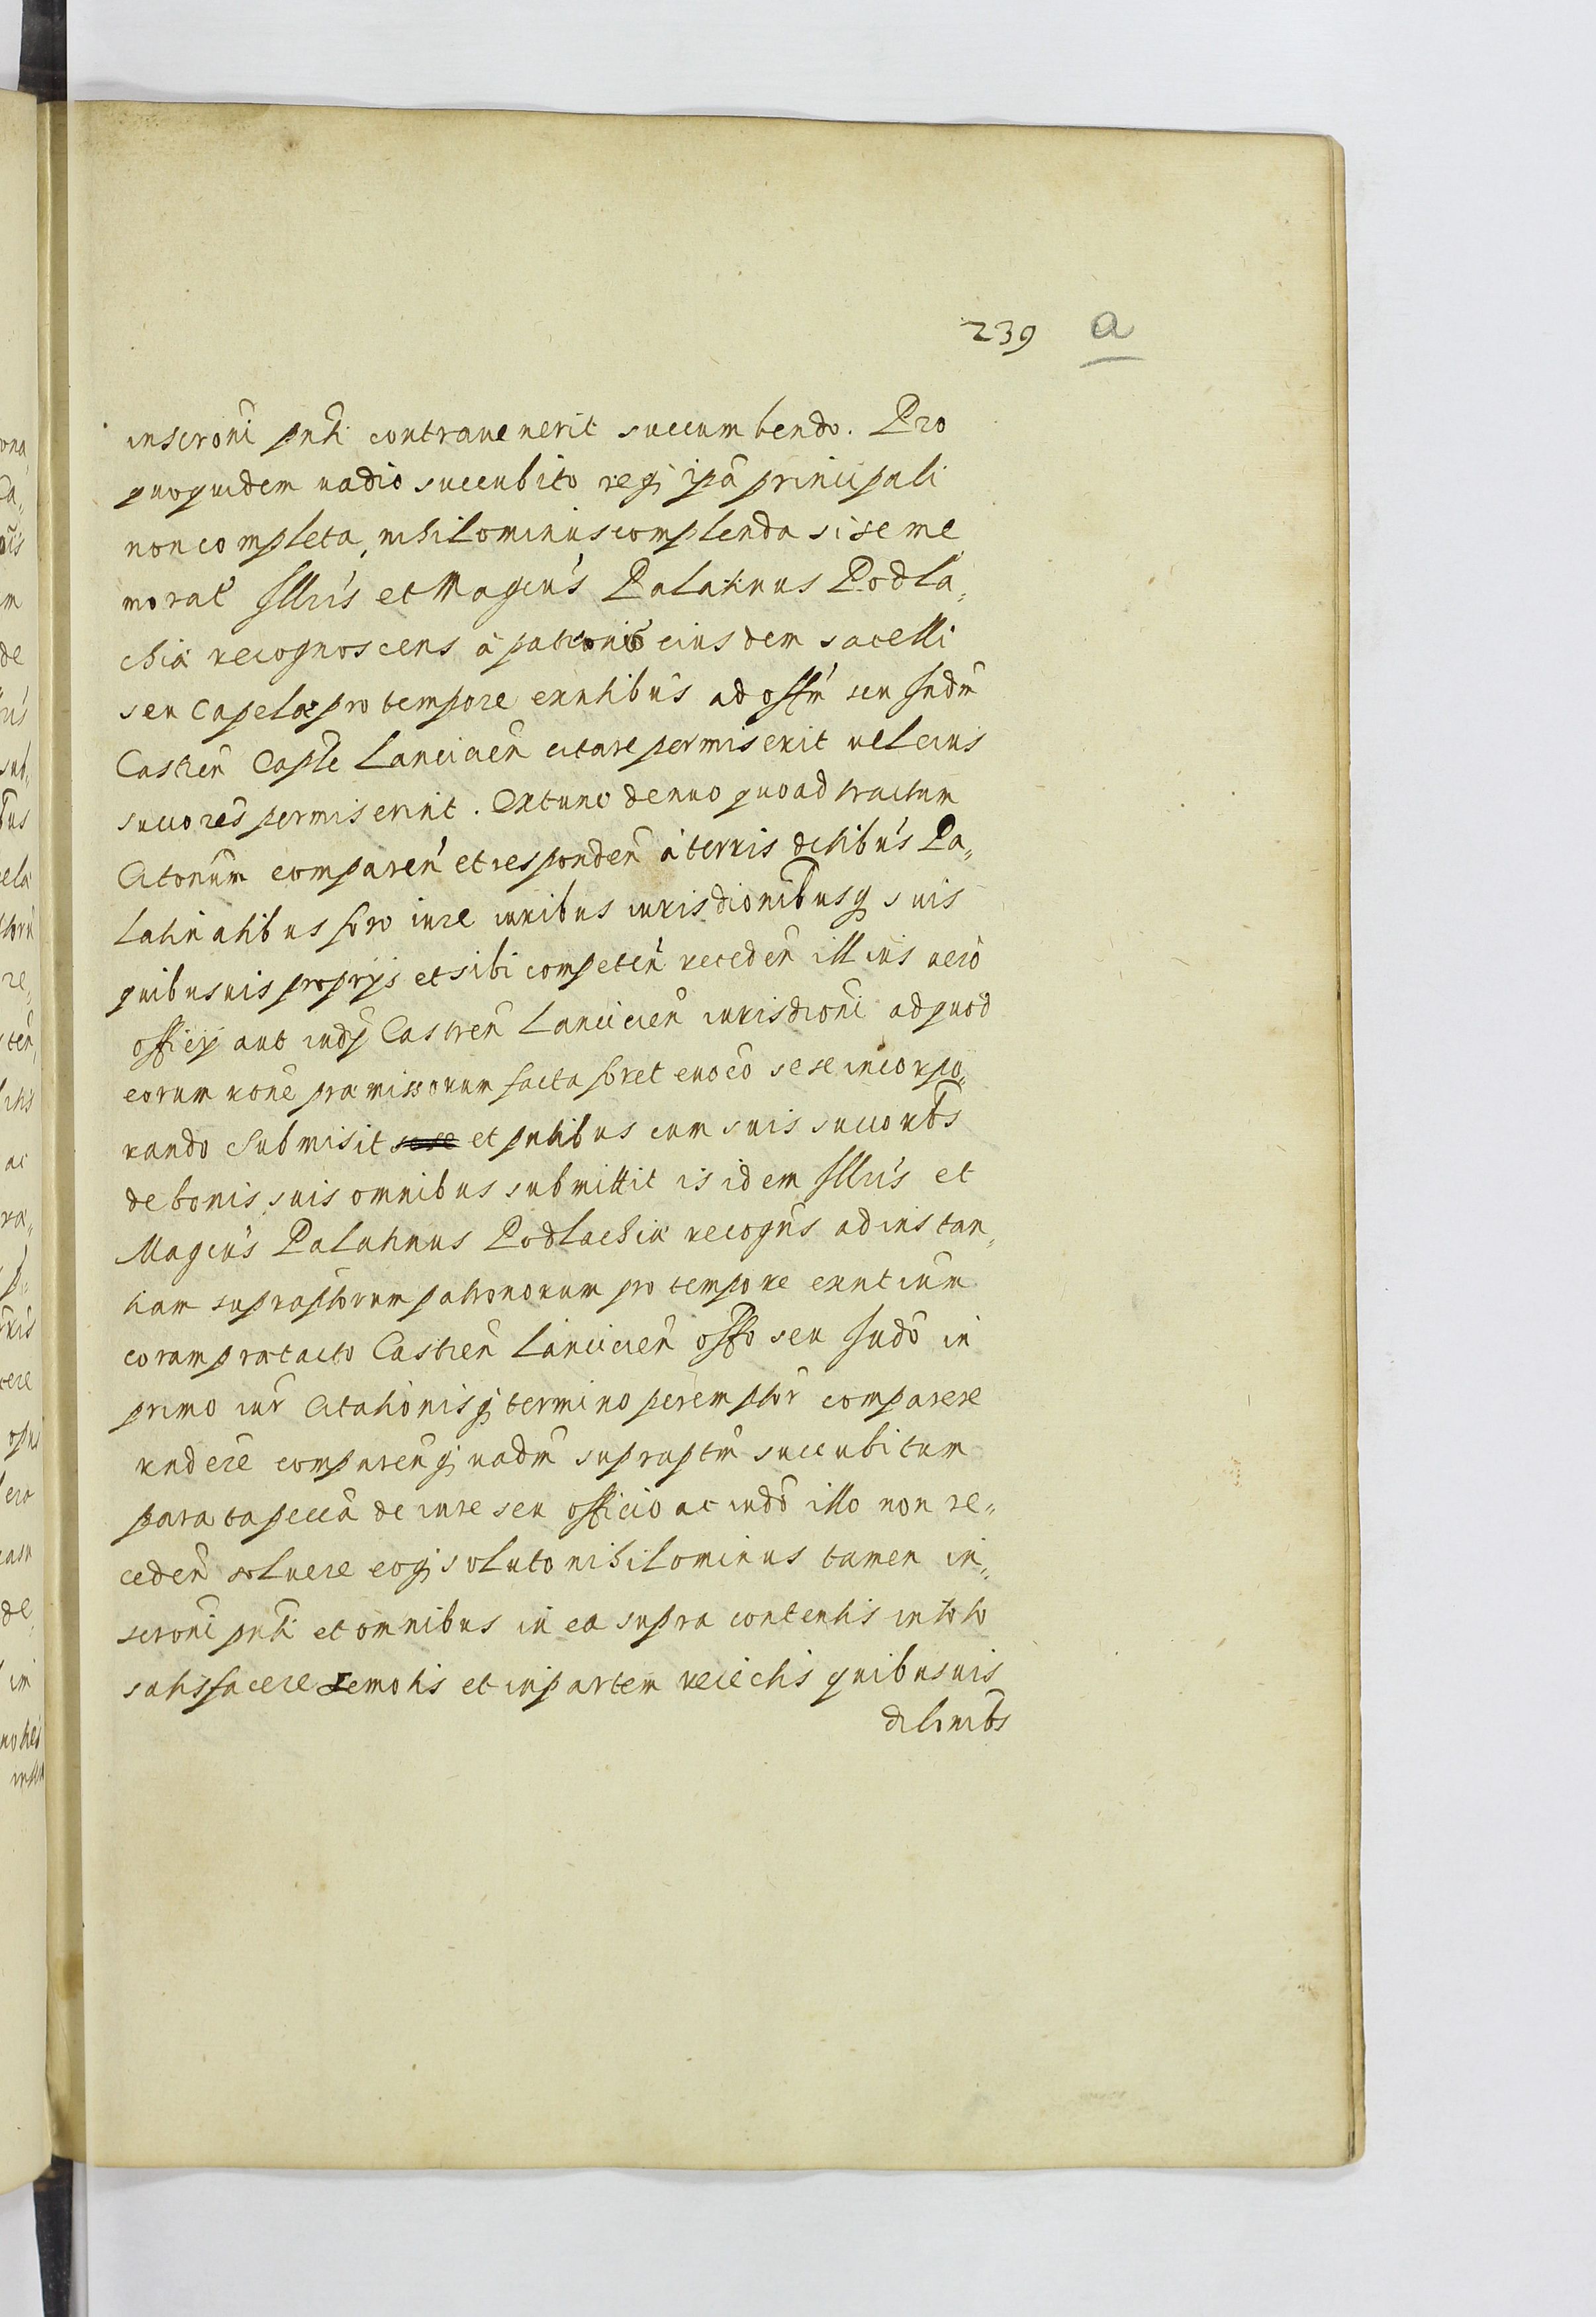 239 a
inscrōni pnti contrauenerit succumbendo. Pro
quoquidem uadio succubito reqȝ ipā principali
non completa, nihilominus complenda si se me
morat̃ Illrĩs et Magcũs Palatinus Podla„
chiæ recognoscens à patronis eiusdem sacelli
seu Capelæ pro tempore exñtibus ad offm̃ seu Iudm̃
Castreñ Cap̃le Lanicieñ citare permiserit uel eius
succores permiserint. Extunc denuo quoad tractum
Citonũm compareñ et respondeñ à terris dctibũs Pa„
latinatibus foro iure iuribus iurisdionibusqȝ suis
quibusuis proprijs et sibi competeñ recedeñ illius uero
officij aut iudij Castreñ Lancicieñ iurisdioni ad quod
eorum rone præmissorum facta foret euoco sese incorpo„
rando submisit et pntibus cum suis succorib̃s
de bonis suis omnibus submittit is idem Illrĩs et
Magcũs Palatinus Podlachiæ recogñs ad instan„
tiam supraptorum patronorum pro tempore exñtium
coram prætacto Castreñ Lancicieñ offo seu Iudõ in
primo iur̃ Citationisqȝ termino peremptor̃ comparere
rndere compareñqȝ uadm̃ supraptm̃ succubitum
parata peccã de iure seu officio ac iudõ illo non re„
cedeñ soluere eoqȝ soluto nihilominus tamen in„
scrōni pnti et omnibus in ea supra contentis in toto
satisfacere remotis et in partem reiectis quibusuis
dilonib̃s